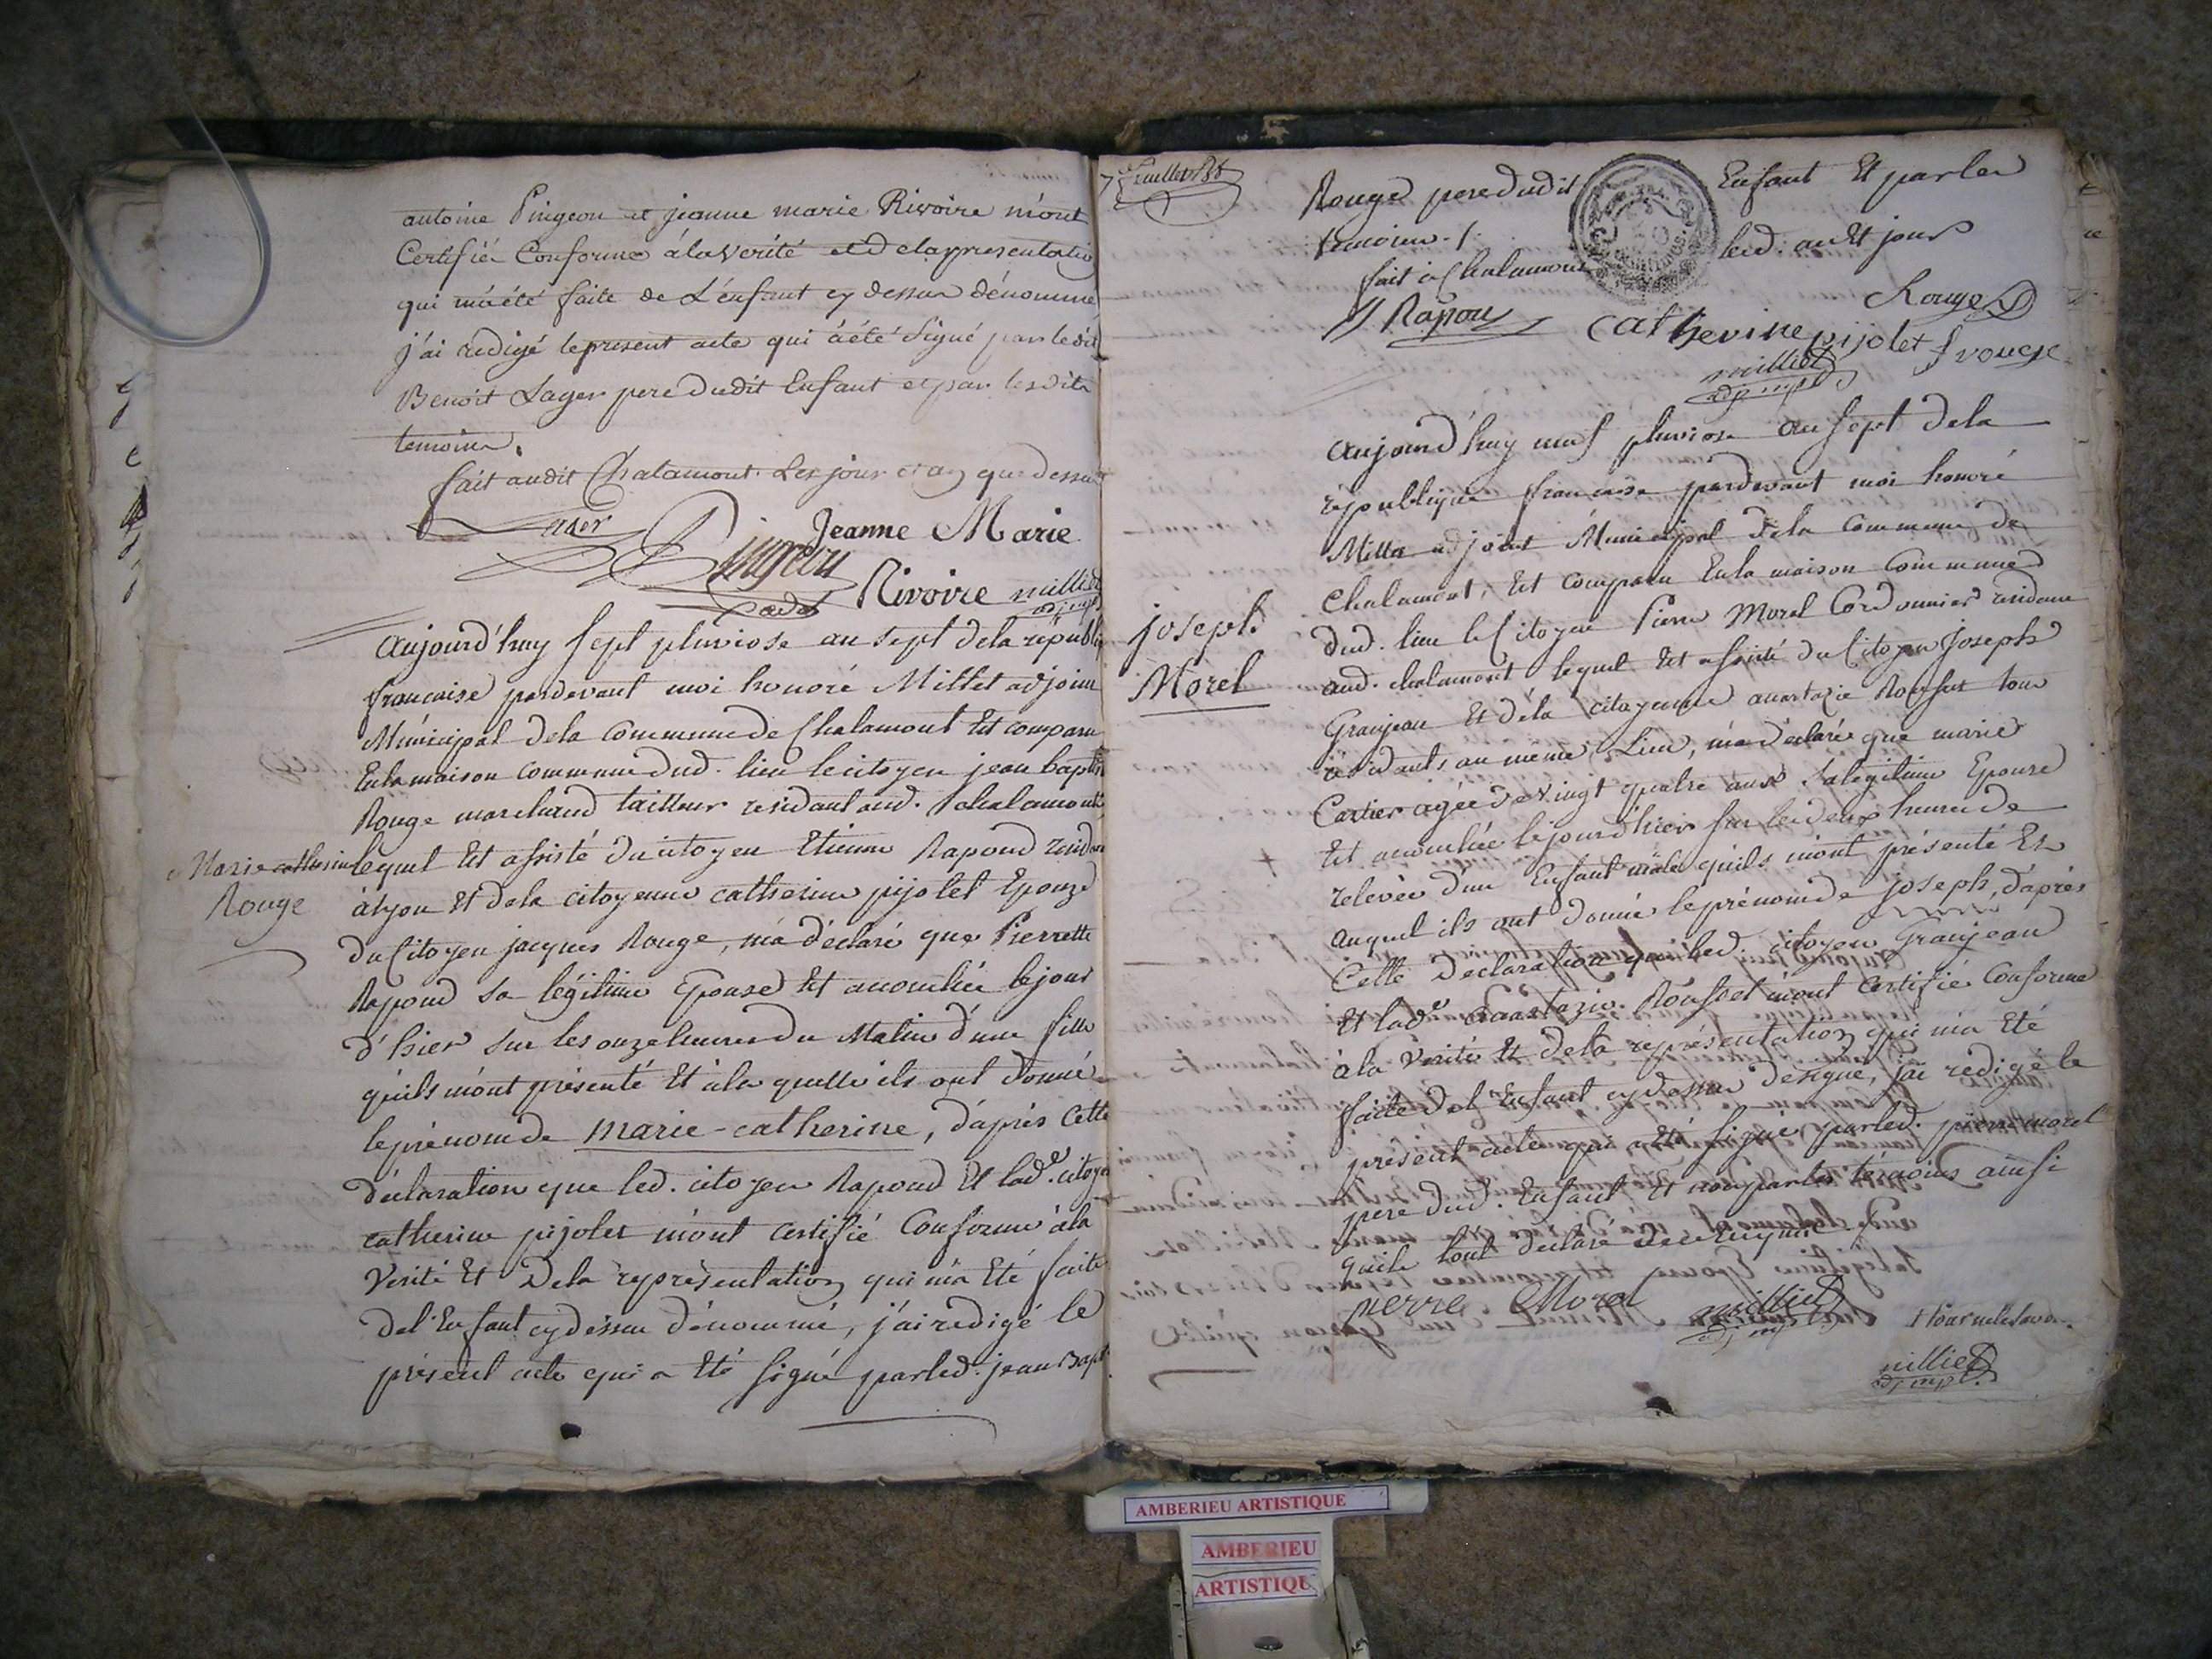 antoine Pingeon et jeanne marie Rivoire m'ont
Certifié Conforme à la verité et de la presentatio
qui m'a été faite de L'enfant cy dessus dénommé
j'ai redigé le present acte qui a été Signé par le dit
Benoit Lager pere dudit Enfant et par les dits
temoins.
fait audit Chalamont. Les jour et an que dessus
Lager
Pingeon
Jeanne Marie
Rivoire milliet
adj mpl
Marie catherine
Rouge
aujourd'huy sept pluviose an sept de la républi
francaise pardevant moi honoré Millet adjoint
Municipal de la Commune de Chalamont Est comparu
En la maison commune dud. lieu le citoyen jean baptis
Rouge marchand tailleur residant aud. Chalamont
lequel Est assisté du citoyen Etienne Rapoud resida
à lyon Et de la citoyenne catherine pijolet Epouze
du Citoyen jacques Rouge, m'a déclaré que Pierrette
Rapoud sa légitime Epouse Est accouchée le jour
d'hier sur les onze heures du Matin d'une fille
qu'ils m'ont présenté Et à la quelle ils ont donné
le prénom de marie-catherine, d'après cette
déclaration que led. citoyen Rapoud Et lade. citoye
catherine pijolet m'ont certifié Conforme à la
Verité Et De la représentation qui m'a Eté faite
de l'Enfant cy dessus dénommé, j'ai redigé le
présent acte qui a Eté signé par led. jean Bapt.
7e feuillet
Rouge pere dudit Enfant Et par les
temoins.
fait à Chalamont led. an Et jour
Rapou
Rouge
catherine pijolet f rouge
milliet
adj mpl
joseph
Morel
aujourd'huy neuf pluviose an sept de la
république francaise pardevant moi honoré
Millet adjoint Municipal de la Commune de
Chalamont, Est comparu En la maison Commune
dud. lieu le Citoyen Pierre Morel Cordonnier residant
aud. chalamont lequel Est assisté du Citoyen joseph
Granjean Et de la citoyenne anastazie Rousset tous
résidants au même Lieu, m'a déclaré que marie
Cartier agée de vingt quatre ans sa legitime Epouse
Est accouchée le jour d'hier sur les deux heures de
relevée d'un Enfant mâle qu'ils m'ont présenté Et
auquel ils ont donné le prénom de joseph, d'après
Cette Declaration que led. citoyen Granjean
Et lade anastazie Rousset m'ont Certifié Conforme
à la Verité Et De la représentation qui m'a Eté
faite de l'Enfant cy dessus designé, j'ai redigé le
présent acte qui a Eté signé par led. pierre morel
pere dud. Enfant Et non par les témoins ainsi
qu'ils l'ont declaré
pierre Morel
milliet
adj mpl
milliet
adj mpl.
AMBERIEU ARTISTIQUE
AMBERIEU
ARTISTIQU